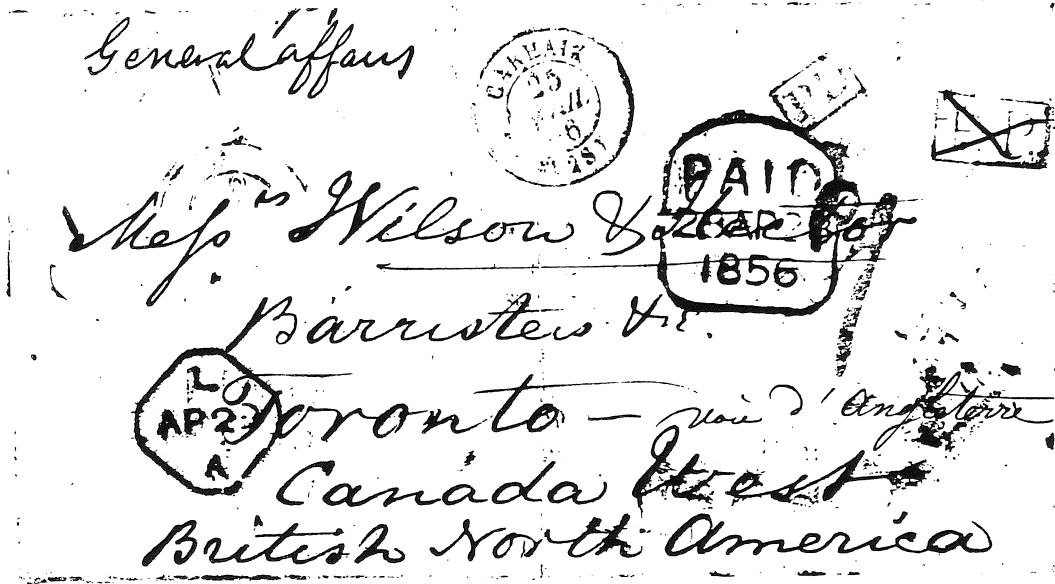 General affairs
CARHAIX
25
6
(28)
PAID
1856
Messrs Wilson & Hector
Barristers &c.
L
AP 23
A
Toronto — voie d'Angleterre
Canada West
British North America